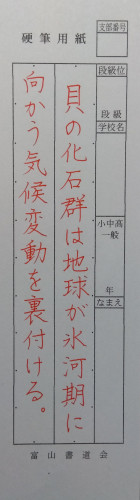 硬筆用紙
支部番号
段級位
段級
学校名
小中高
一般
年
なまえ
貝の化石群は地球が氷河期に
向かう気候変動を裏付ける。
富山書道会